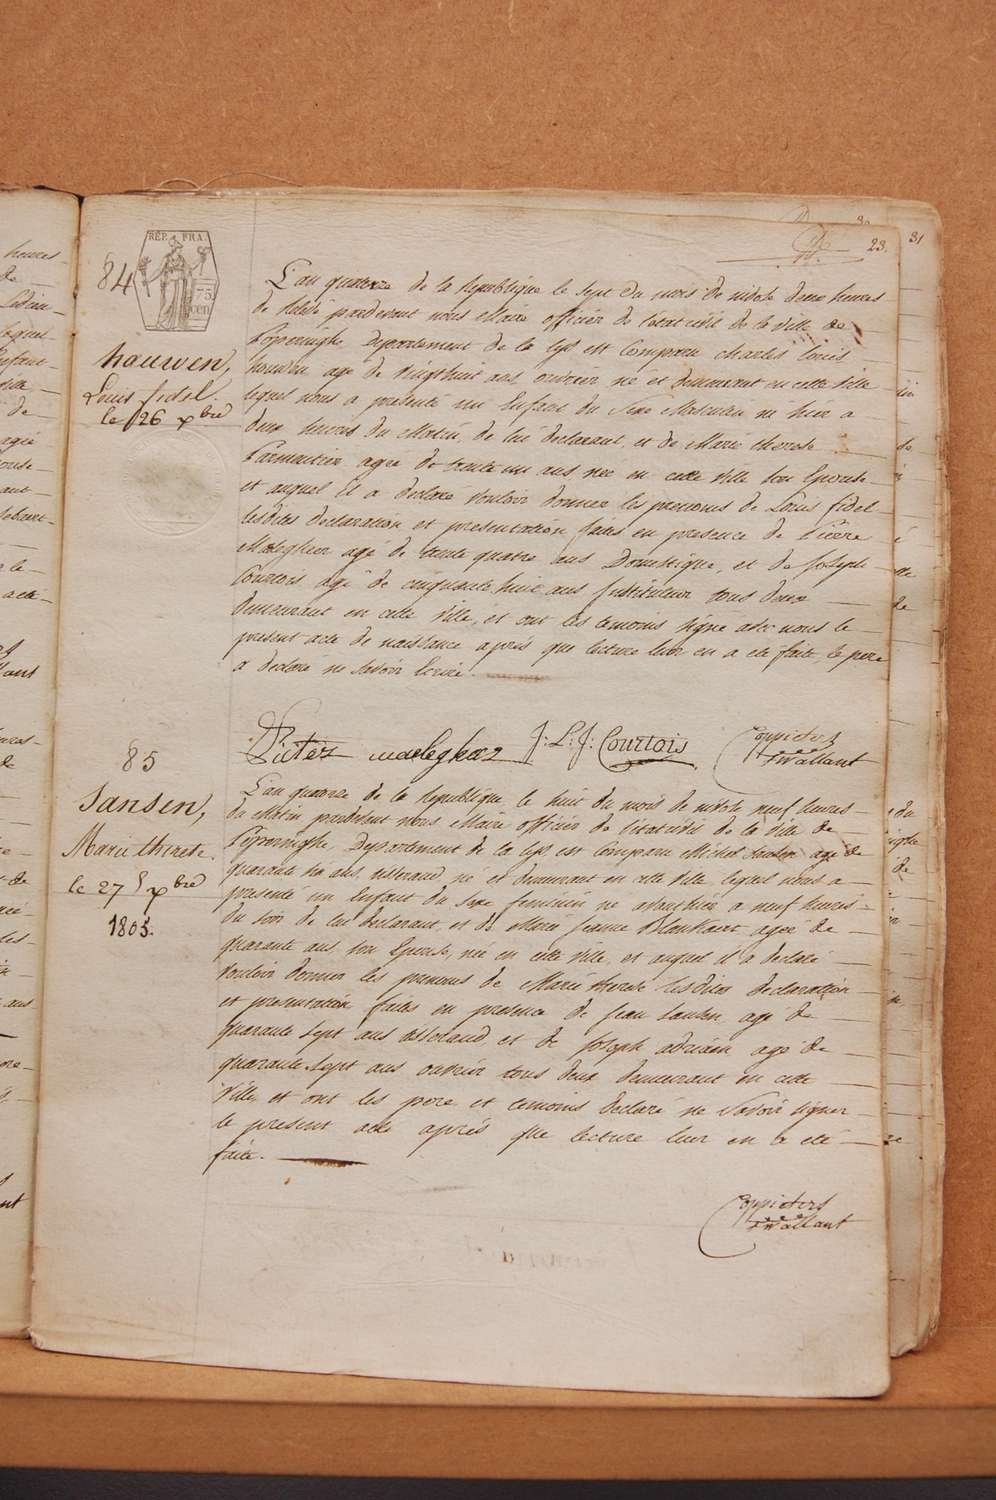 23.
31
REP. FRA.
75
CEN
84
hauwen,
Louis fidel.
le 26 xbre
L'an quatorze de la Republique le sept du mois de nivose deux heures
de Relevé pardevant nous Maire officier de l'etat civil de la ville de
Poperinghe Departement de la Lys est Comparu Charles Louis
houwen age de vingthuit ans ouvrier né et demeurant en cette ville
lequel nous a présenté un Enfant du Sexe Masculin né hier a
deux heures du Matin, de lui declarant et de Marie therese
Parmentier agée de trente un ans née en cette ville son Epouse
et auquel il a declaré vouloir donner les prenoms de Louis fidel
lesdites declaration et presentation faites en presence de Pierre
Maleghier agé de trente quatre ans Domestique, et de Joseph
Courtois agé de cinquante huit ans Instituteur tous deux
demeurant en cette ville, et ont les temoins signe avec nous le
present acte de naissance après que lecture leur en a été faite, le pere
a declaré ne savoir Ecrire.
Pieter maelegheer J: L: J: Courtois Coppieters
Twallant
85
Jansen,
Marie therese.
le 27 xbre
1805.
L'an quatorze de la Republique le huit du mois de nivose neuf heures
du Matin pardevant nous Maire officier de l'etat civil de la Ville de
Poperinghe Departement de la Lys est Comparu Michel Jansen agé de
quarante six ans tisserand né et demeurant en cette ville lequel nous a
presenté un Enfant du Sexe feminin né avanthier a neuf heures
du Soir de lui declarant et de Marie Jeanne Blankaert agée de
quarante ans son Epouse, née en cette ville et auquel il a declaré
vouloir donner les prenoms de Marie therese lesdites declaration
et presentation faites en presence de Jean Jansen agé de
quarante sept ans tisserand et de Joseph adriaen agé de
quarante sept ans ouvrier tous deux demeurant en cette
Ville, et ont les pere et temoins declaré ne Savoir signer
le present acte après que lecture leur en a été
faite.
Coppieters
Twallant